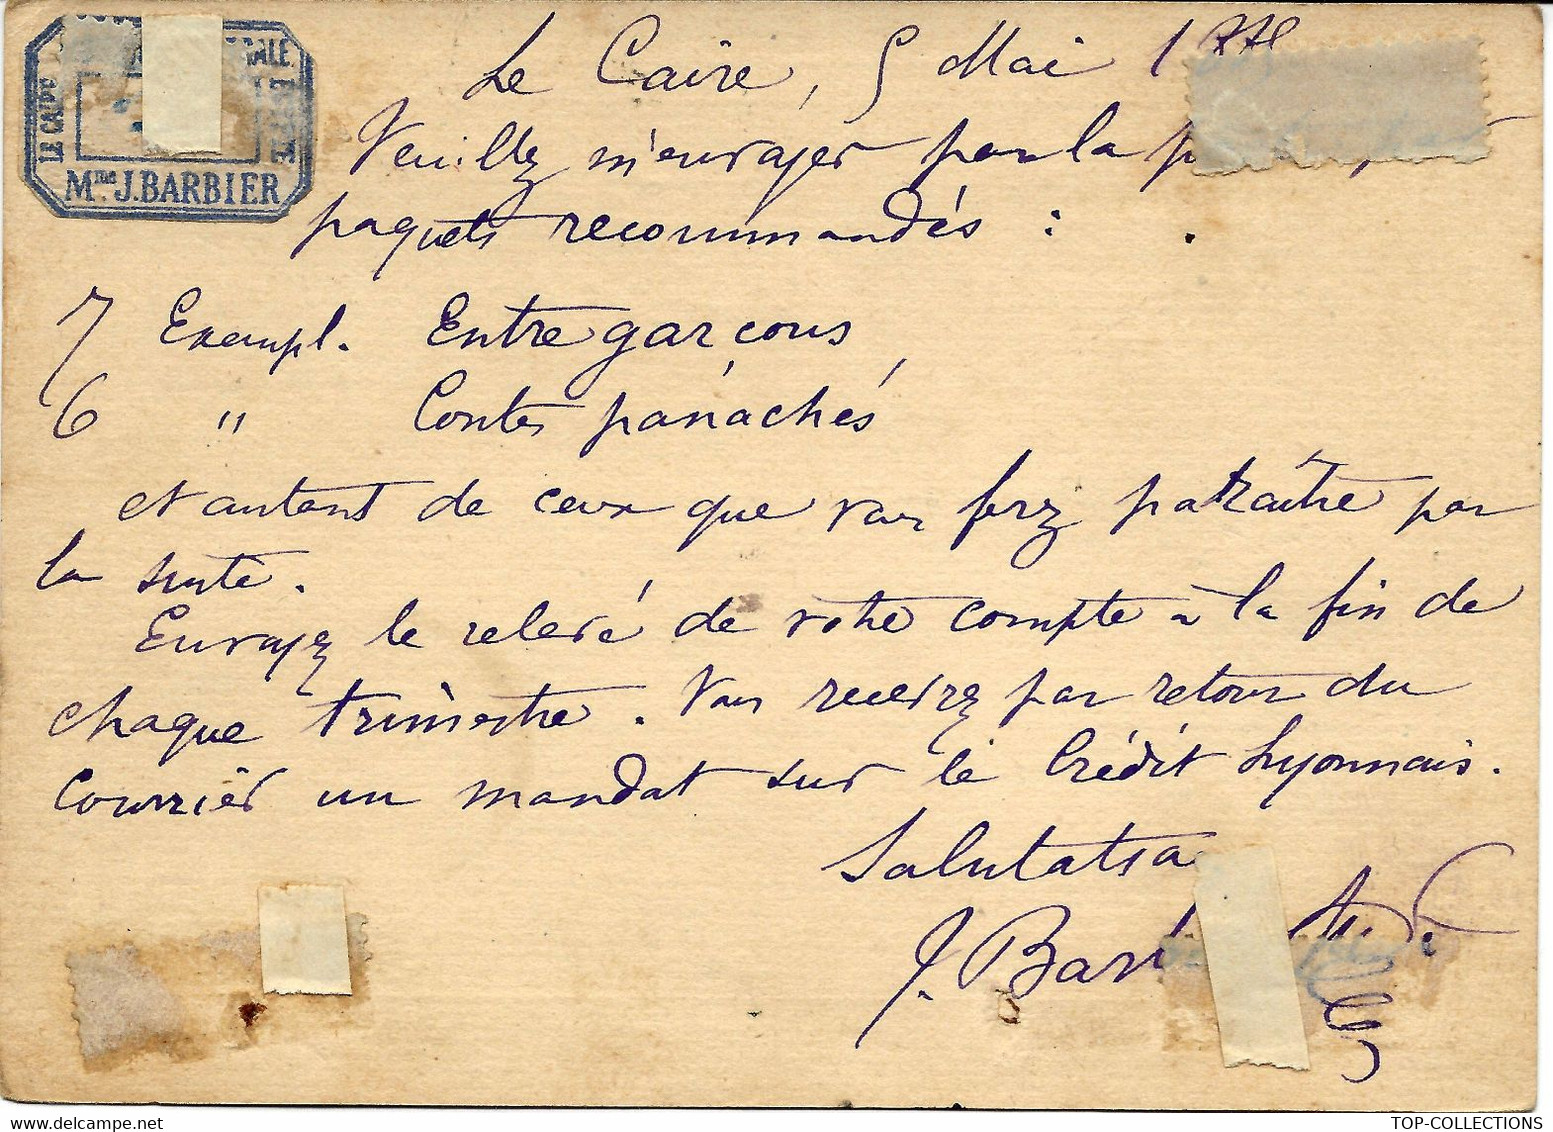 LE CAIRE
Mme J. BARBIER
Le Caire, 5 Mai
Veuillez m'envoyer par la
paquets recommandés :
7 Exempl. Entre garçons
6 " Contes panachés
et autant de ceux que vous ferez paraître par
la suite.
Envoyez le relevé de votre compte à la fin de
chaque trimestre. Vous recevrez par retour du
Courrier un mandat sur le Crédit Lyonnais.
Salutations
J. Barbier
TOP-COLLECTIONS